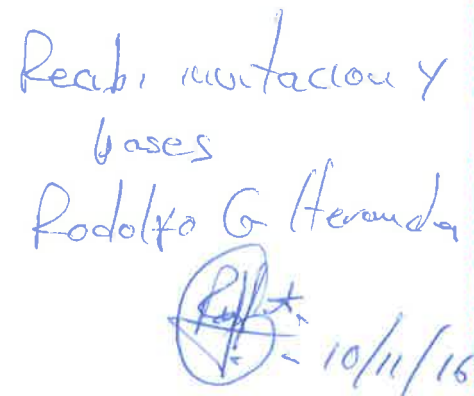 Recibi invitacion y
bases
Rodolfo G Hernandez
10/11/16